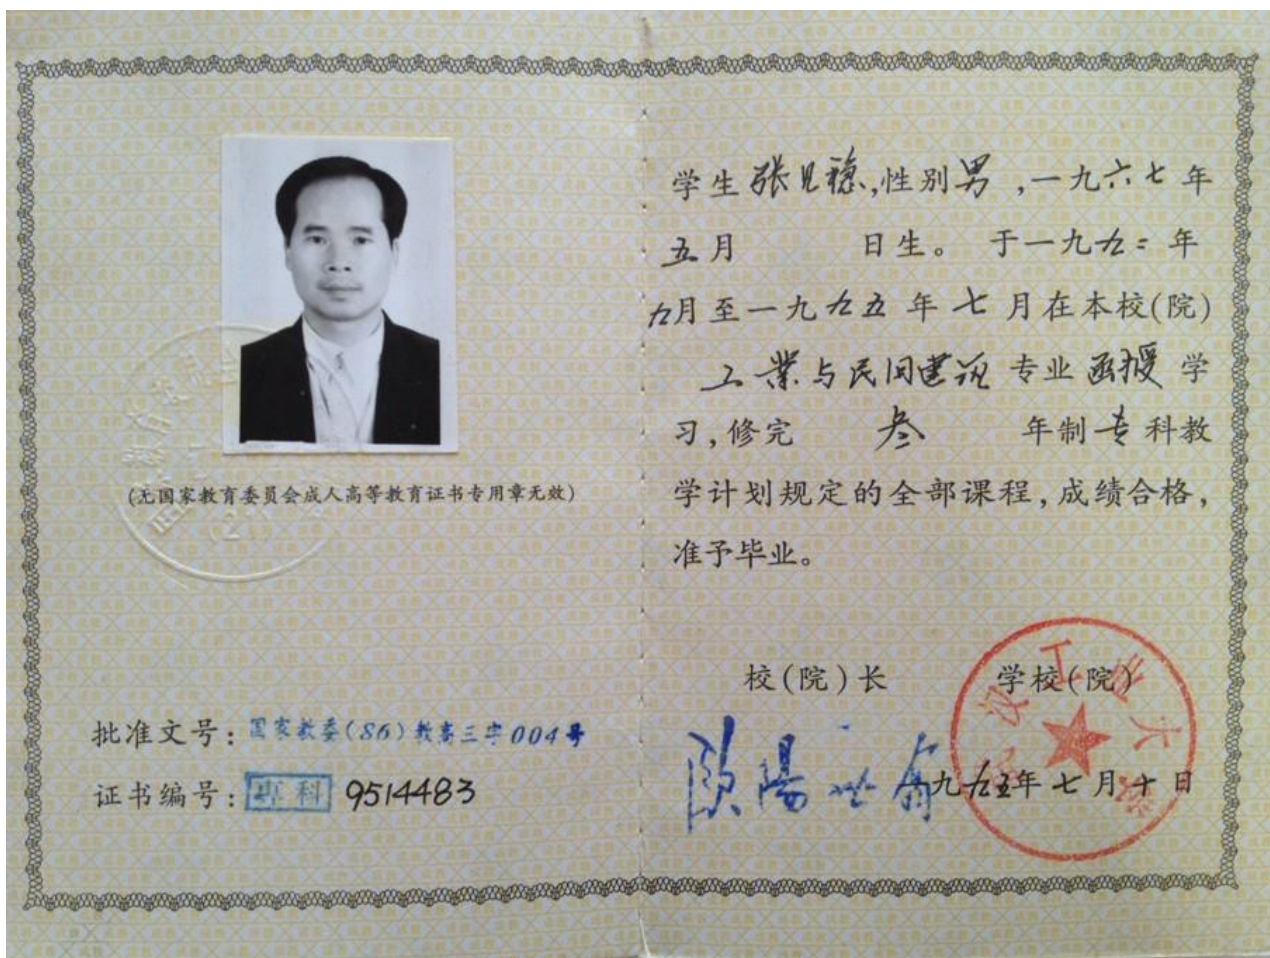 (无国家教育委员会成人高等教育证书专用章无效)
批准文号：国家教委(86)教高三字004号
证书编号：专科 9514483
学生张见稳,性别男,一九六七年
五月 日生。于一九九二年
九月至一九九五年七月在本校(院)
工業与民间建筑专业函授学
习,修完 叁 年制专科教
学计划规定的全部课程,成绩合格,
准予毕业。
校(院)长 学校(院)
武汉工业大学
欧陽世
一九九五年七月十日